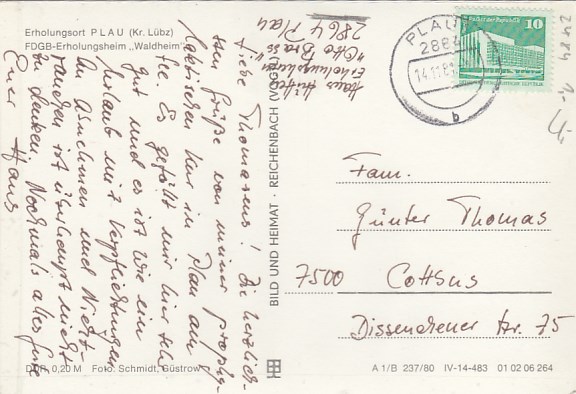 Erholungsort PLAU (Kr. Lübz)
FDGB-Erholungsheim „Waldheim"
Liebe Thomasens! Die herzlich-
sten Grüße von meiner prophy-
laktischen Kur in Plau an
Sie. Es gefällt mir hier sehr
gut und es ist wie ein
Urlaub mit Verpflichtungen
Abnehmen und Nicht-
rauchen ist überhaupt nicht
zu denken. Nochmals alles Gute
Euer Hans
Erholungsheim
"Otto Brass"
2864 Plau
BILD UND HEIMAT · REICHENBACH (VOGTL)
PLAU
2864
14.11.81
b
Palast der Republik
10
Fam.
Günter Thomas
7500 Cottbus
Dissenchener Str. 75
DDR 0,20 M Foto: Schmidt, Güstrow
A 1/B 237/80 IV-14-483 01 02 06 264